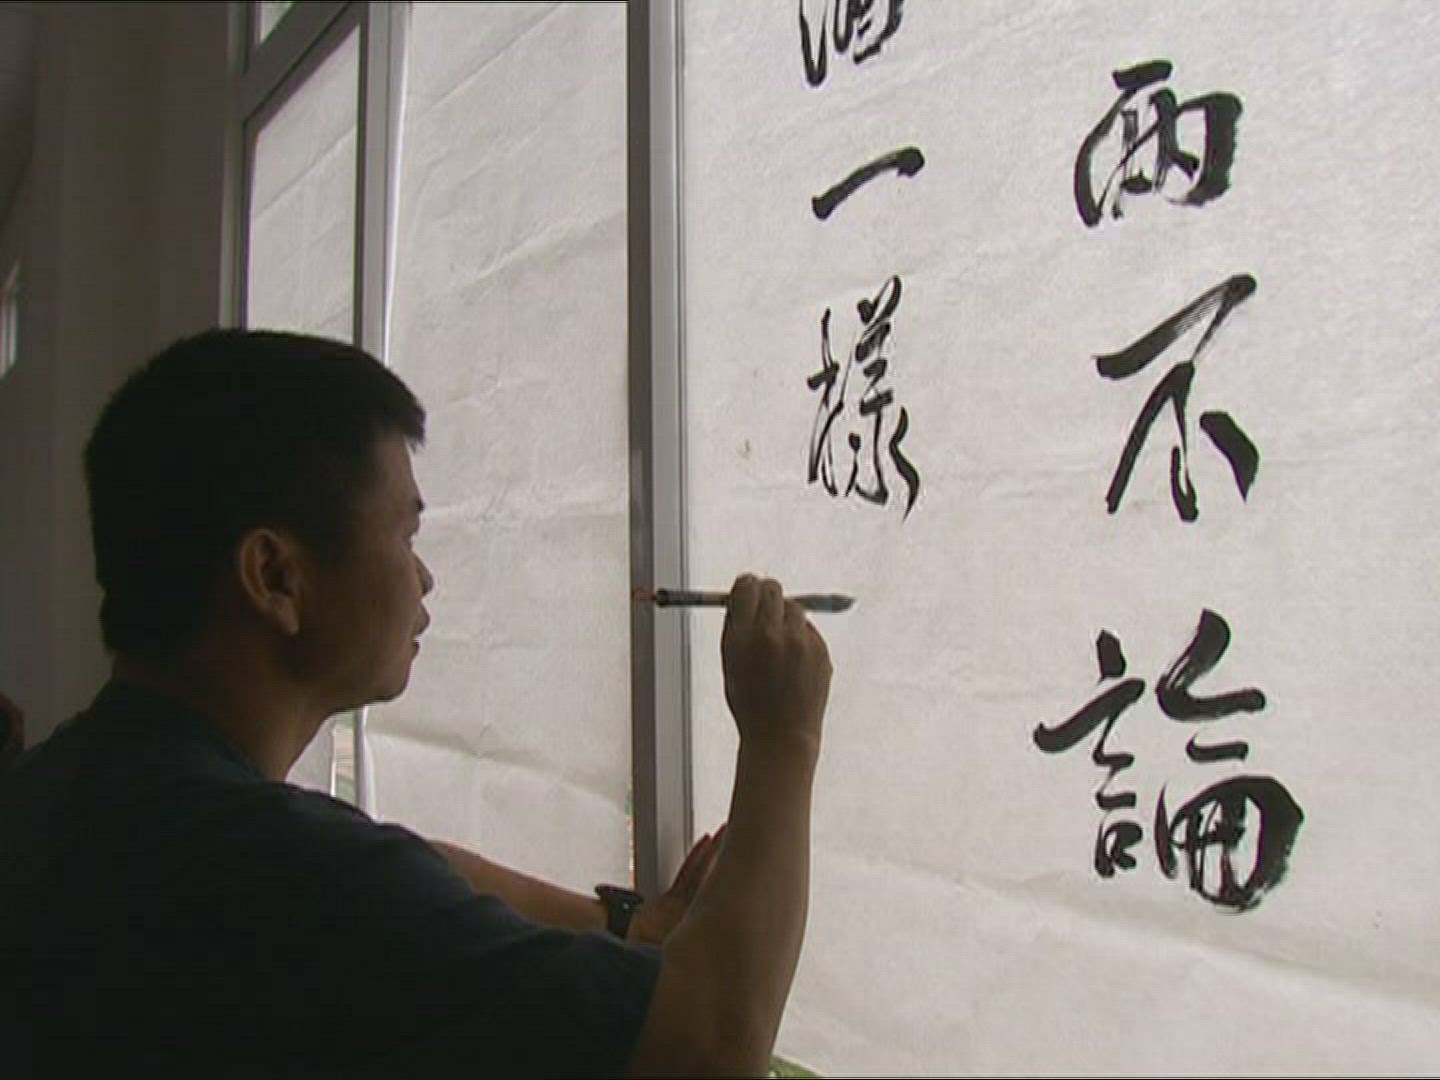 兩不論
一樣